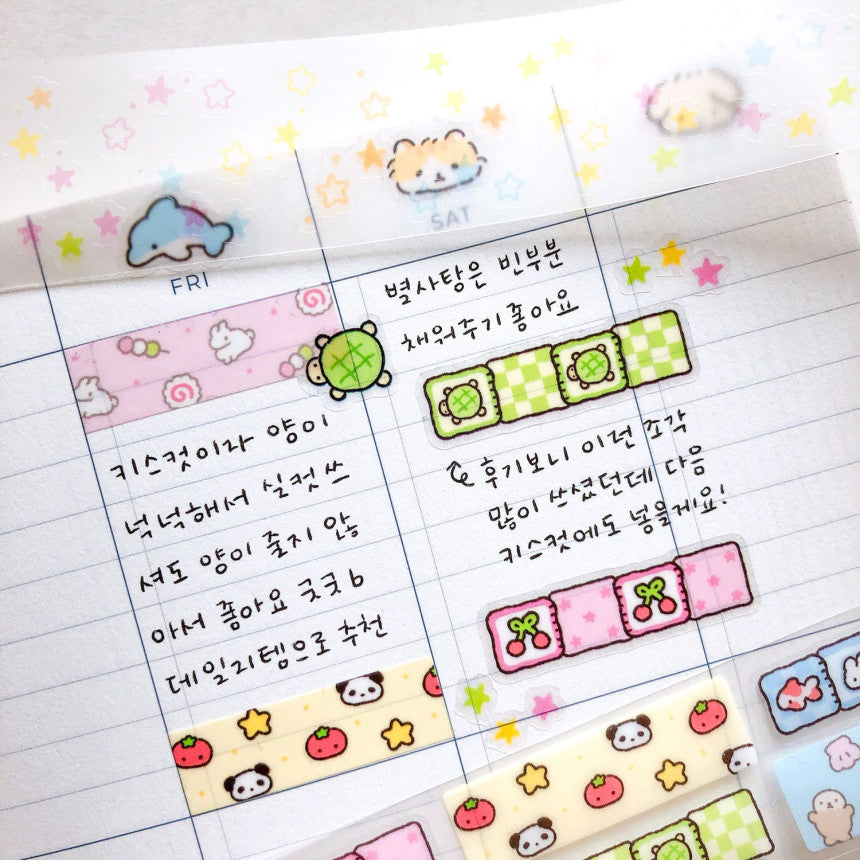 FRI
키스컷이라 양이
넉넉해서 실컷 쓰
셔도 양이 줄지 않
아서 좋아요 굿굿b
데일리템으로 추천
SAT
별사탕은 빈부분
채워주기 좋아요
후기보니 이런 조각
많이 쓰셨던데 다음
키스컷에도 넣을게요!